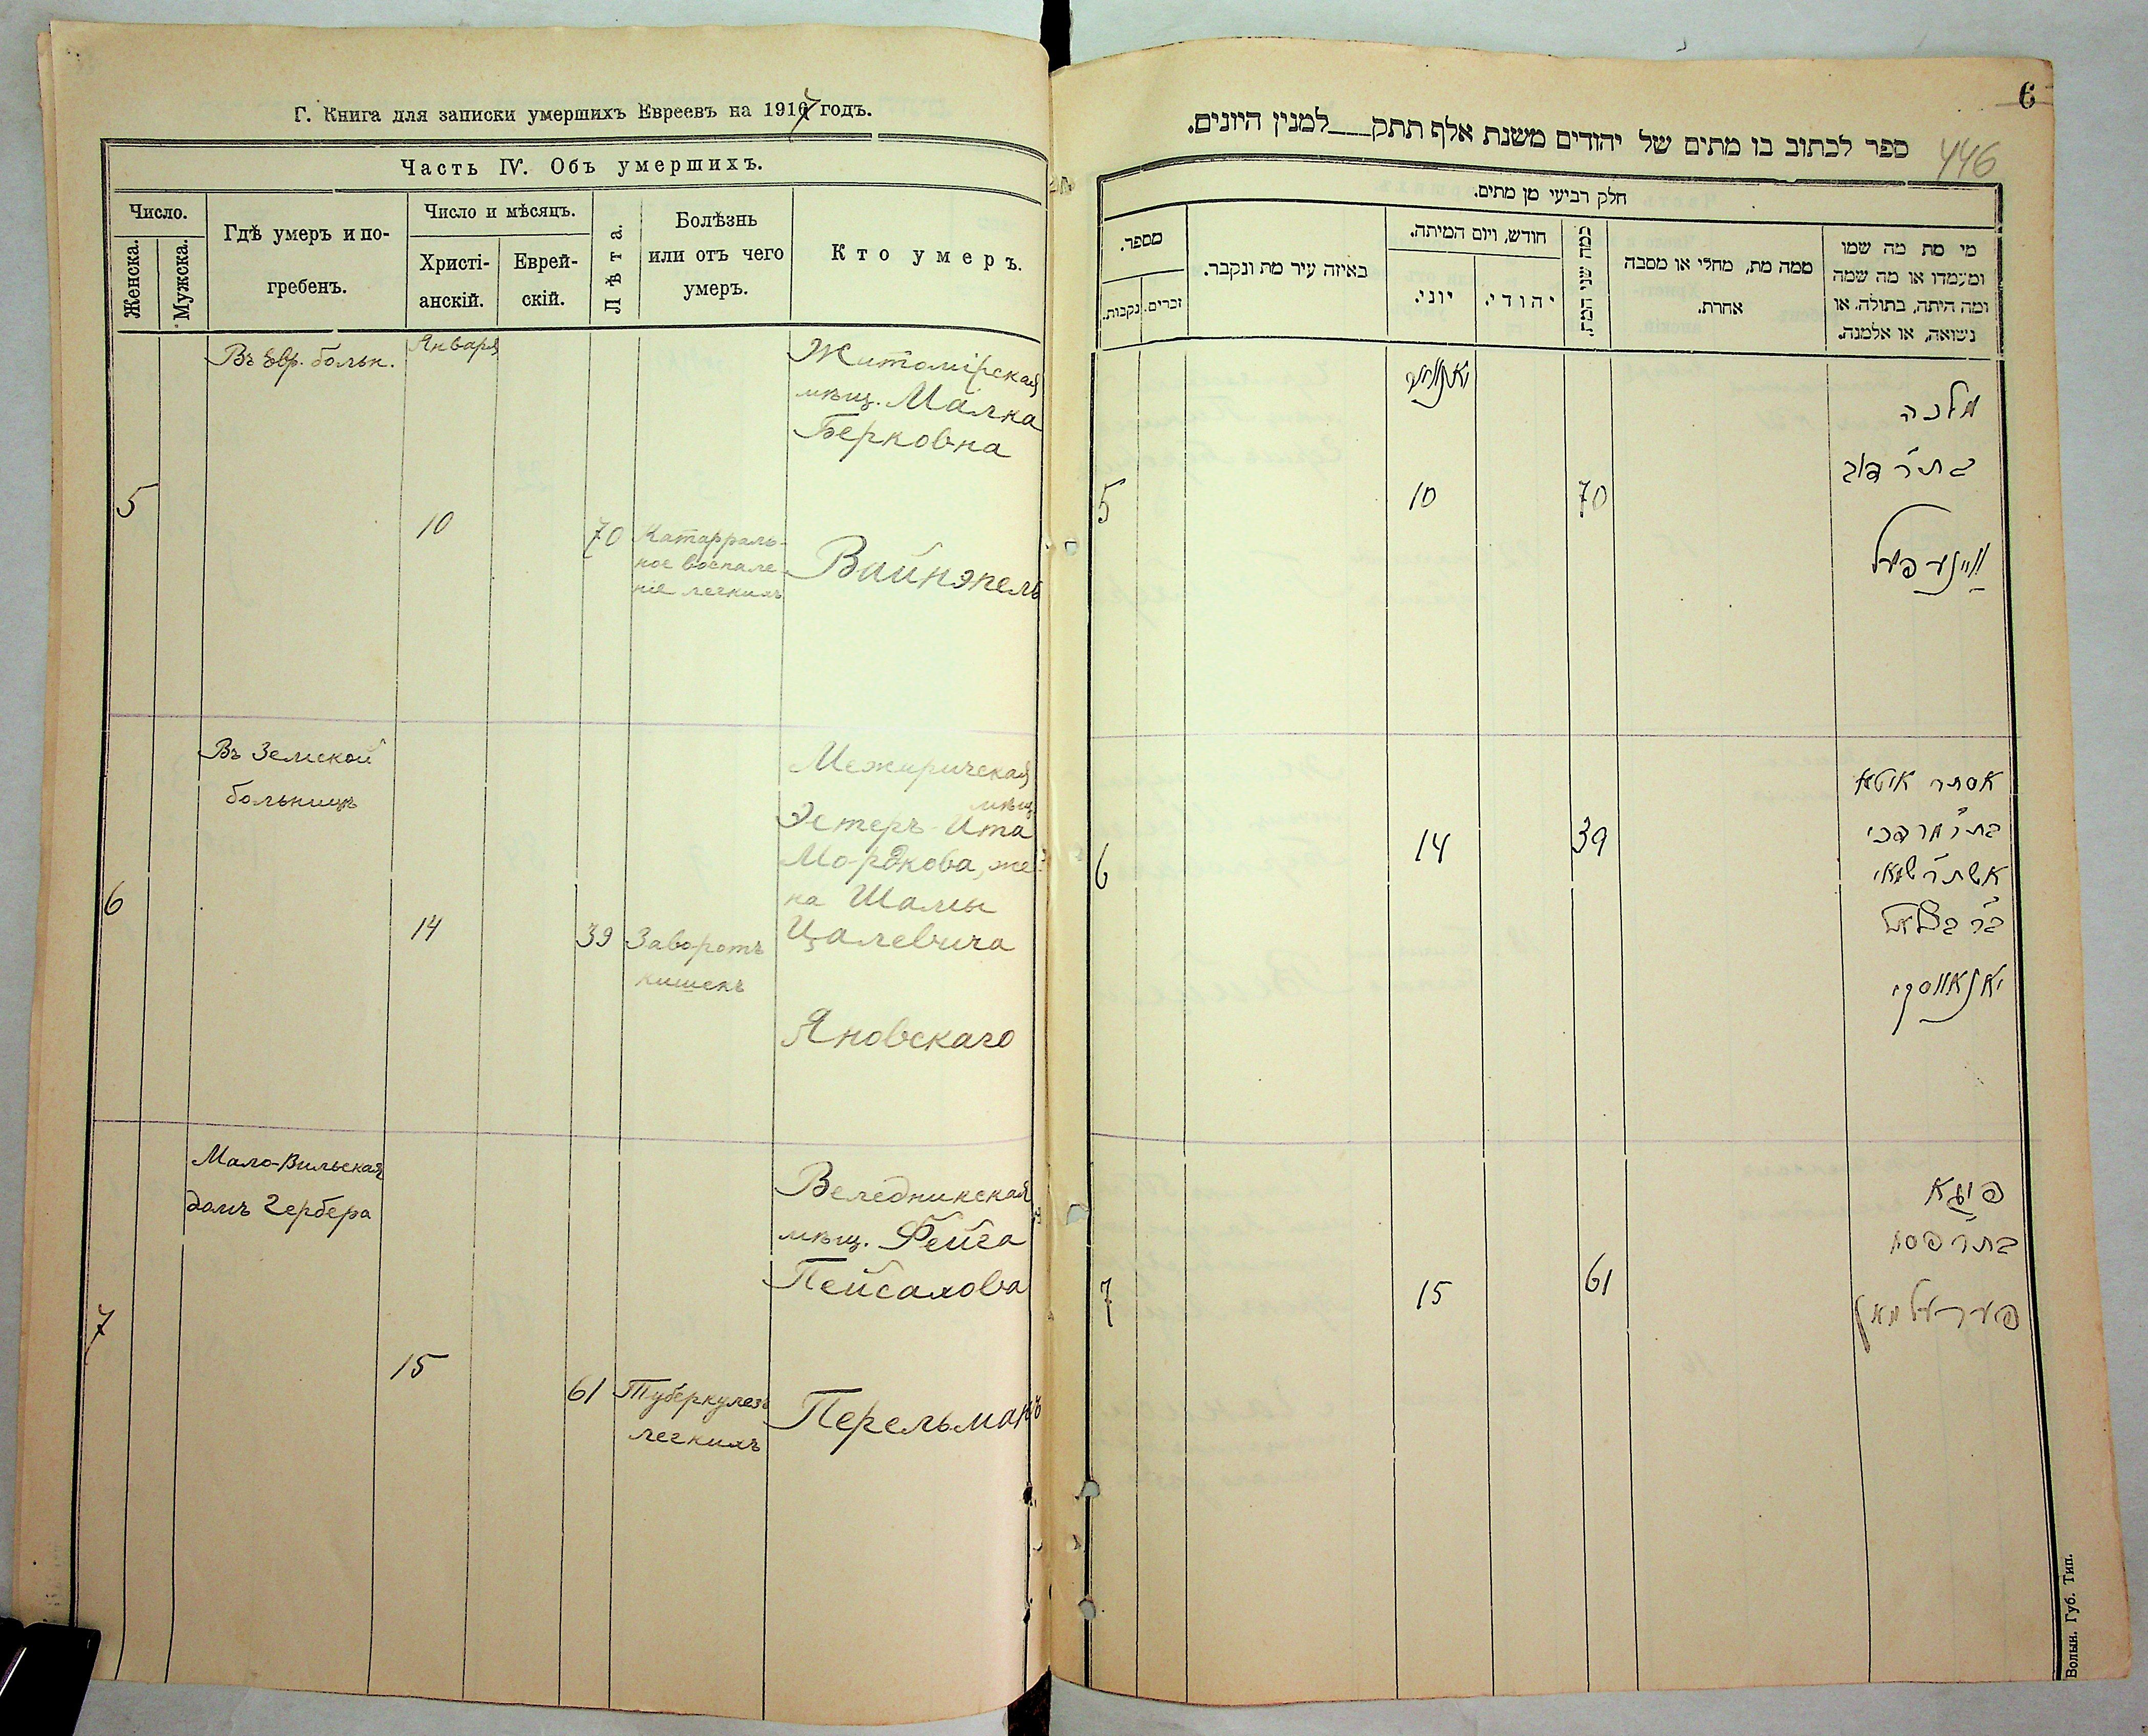 Г. Книга для записки умершихъ Евреевъ на 1917 годъ.
Часть IV. Объ умершихъ.
Число.
Женска.
Мужска.
Гдѣ умеръ и по-
гребенъ.
Число и мѣсяцъ.
Христі-
анскій.
Еврей-
скій.
Лѣта.
Болѣзнь
или отъ чего
умеръ.
Кто умеръ.
Въ Евр. больн.
Января
Житомірская
мѣщ. Малка
Берковна
5
10
70
Катарраль-
ное воспале-
ніе легкихъ
Вайнэпель
Въ Земской
больницѣ
Межиричская
мѣщ.
Эстеръ-Ита
Мордкова, же-
на Шамы
Цалевича
6
14
39
Заворотъ
кишекъ
Яновскаго
Мало-Вильская
домъ Гербера
Веледникская
мѣщ. Фейга
Пейсахова
7
15
61
Туберкулезъ
легкихъ
Перельманъ
6
446
ספר לכתוב בו מתים של יהודים משנת אלף תתק___למנין היונים.
חלק רביעי מן מתים.
מספר.
נקבות.
זכרים.
באיזה עיר מת ונקבר.
חודש, ויום המיתה.
יוני.
יהודי.
כמה שני המת.
ממה מת, מחלי או מסבה
אחרת.
מי מת מה שמו
ומעמדו או מה שמה
ומה היתה, בתולה, או
נשואה, או אלמנה.
יאנואר
מלכה
בת ר' דוב
5
10
70
וויינעפעל
אסתר איטא
בת ר' מרדכי
אשת ר' שמאי
ב"ר בצלאל
6
14
39
יאנאווסקי
פיגא
בת ר' פסח
7
15
61
פערעלמאן
Волын. Губ. Тип.